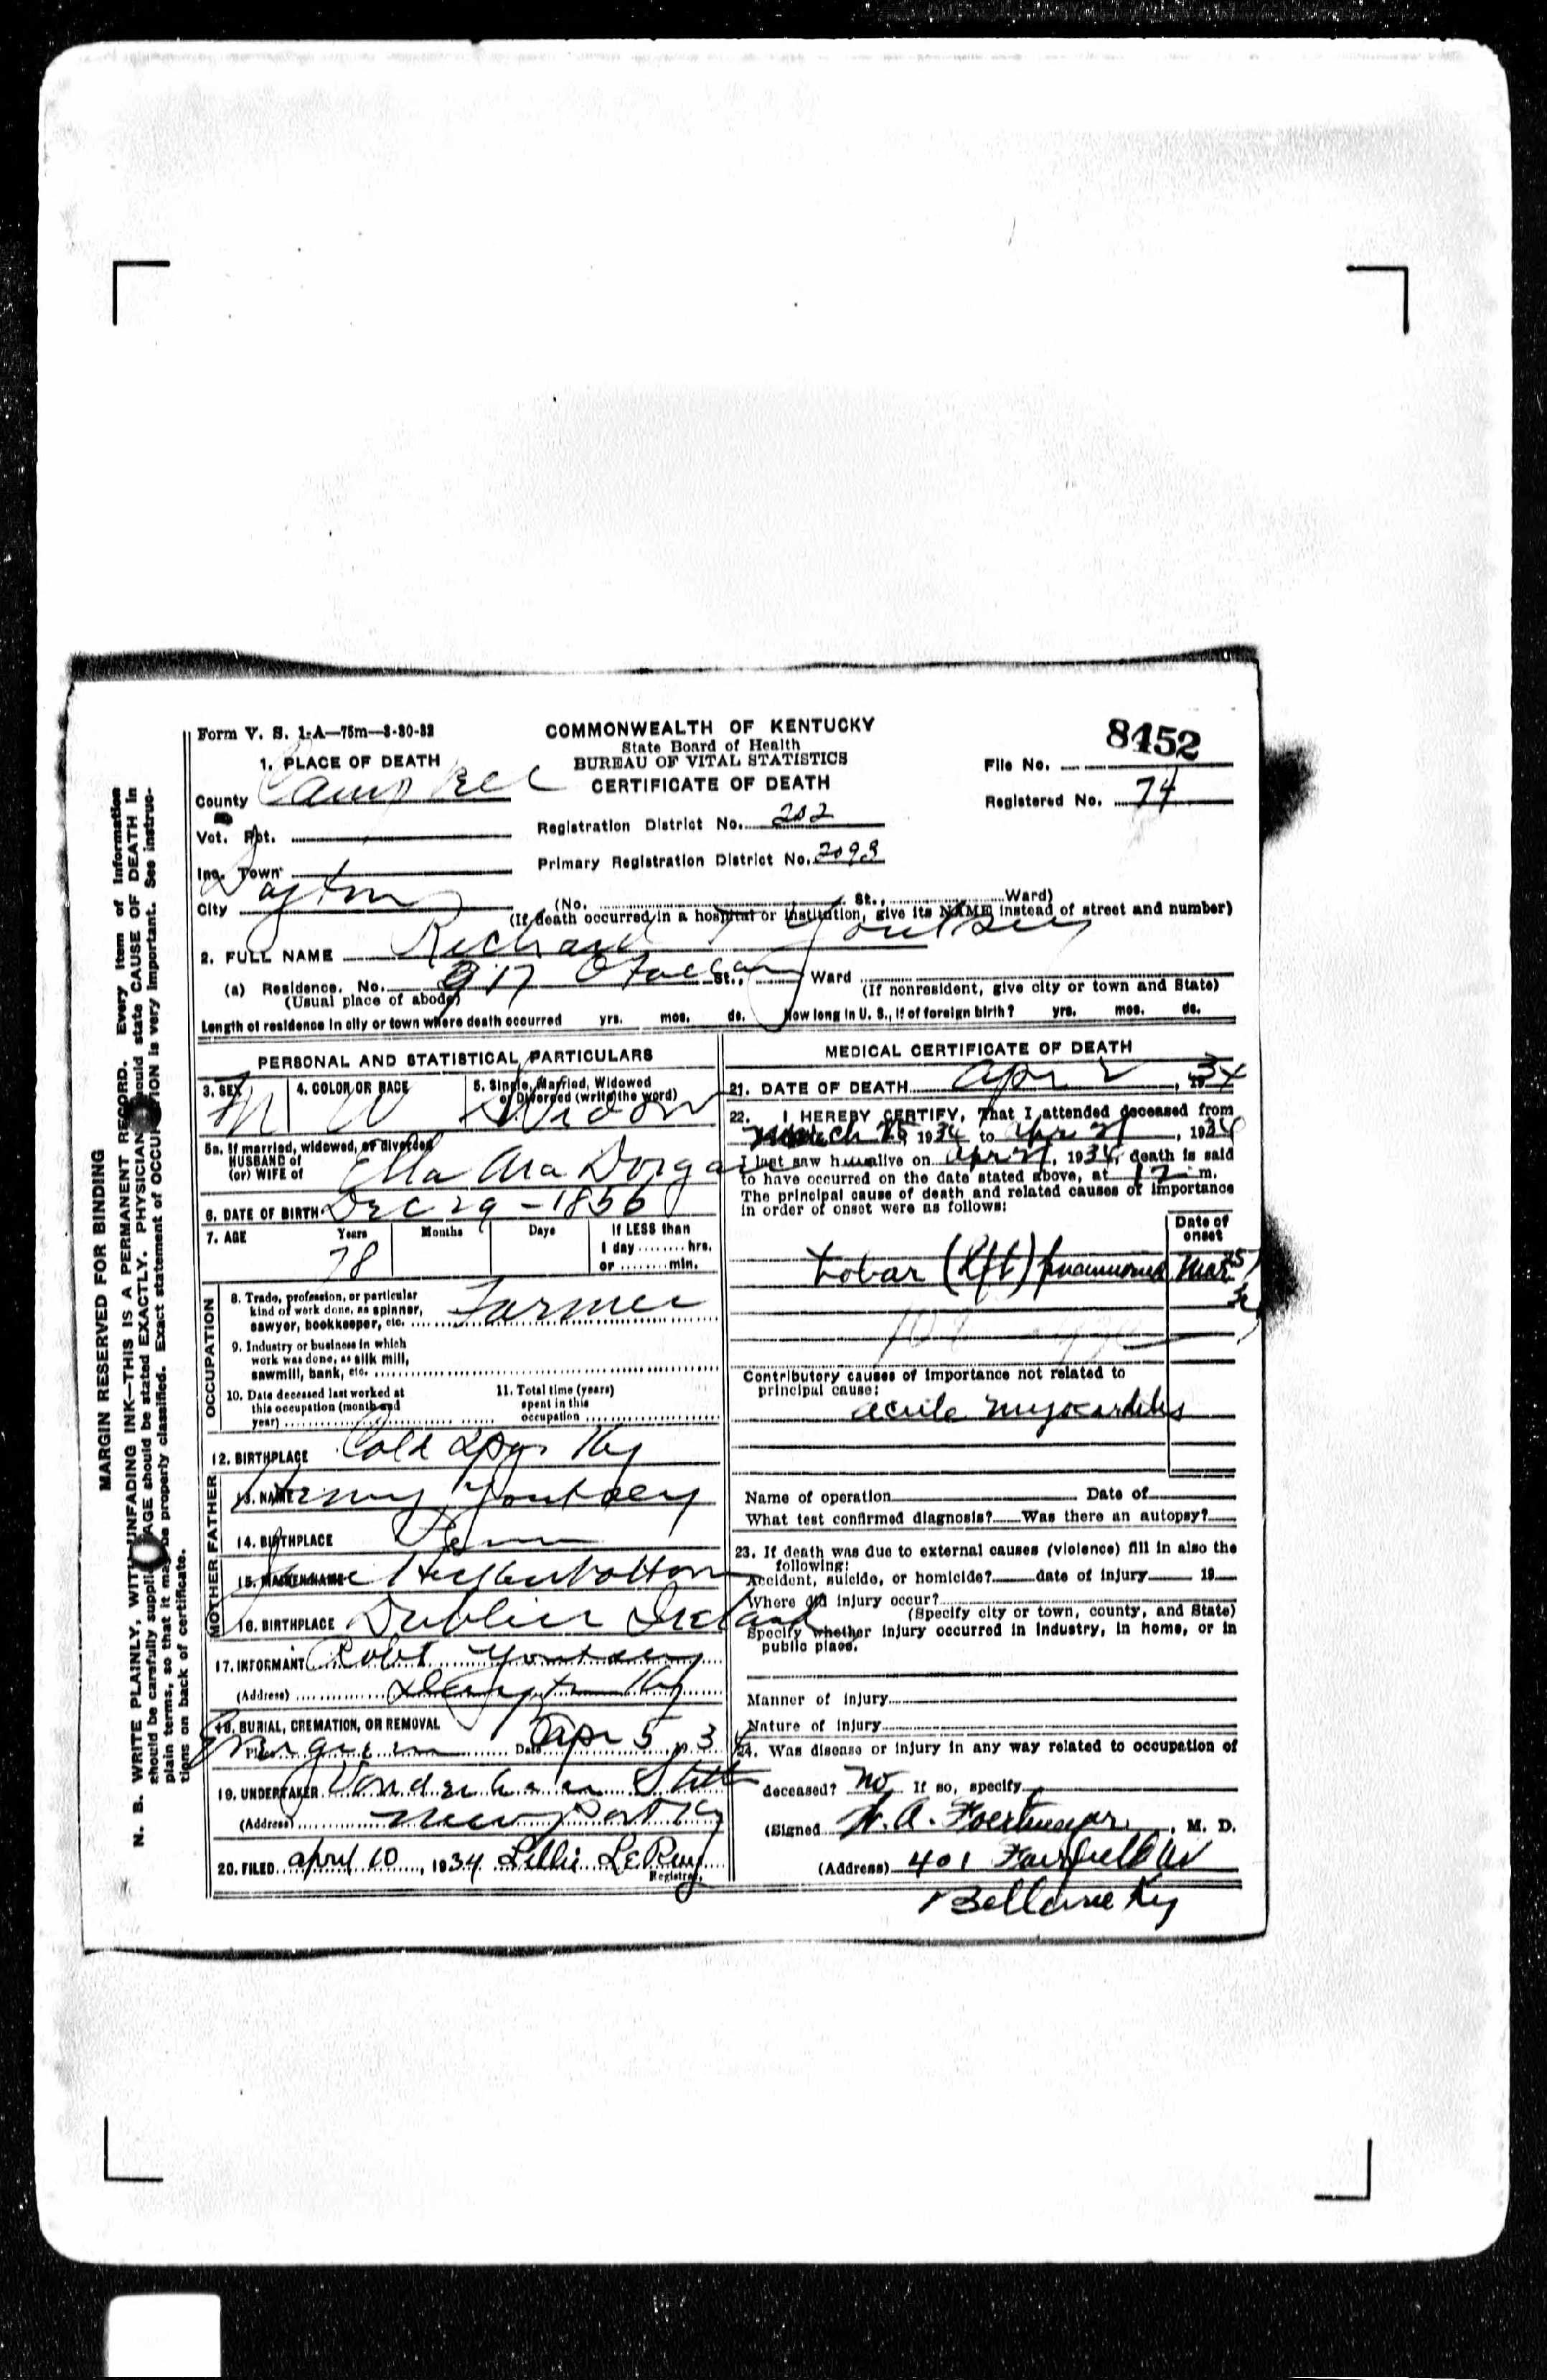 Form V. S. 1-A—75m—3-30-32
COMMONWEALTH OF KENTUCKY
State Board of Health
BUREAU OF VITAL STATISTICS
CERTIFICATE OF DEATH
8452
File No.
Registered No. 74
1. PLACE OF DEATH
County Campbell
Vot. Pct.
Inc. Town
City Dayton
Registration District No. 202
Primary Registration District No. 2093
(No. St., Ward)
(If death occurred in a hospital or institution, give its NAME instead of street and number)
2. FULL NAME Richard Youtsey
(a) Residence. No. 917 St., Ward
(Usual place of abode)
(If nonresident, give city or town and State)
Length of residence in city or town where death occurred yrs. mos. ds. How long in U. S., if of foreign birth? yrs. mos. ds.
PERSONAL AND STATISTICAL PARTICULARS
3. SEX M
4. COLOR OR RACE W
5. Single, Married, Widowed or Divorced (write the word) Widow
5a. If married, widowed, or divorced
HUSBAND of
(or) WIFE of Ella Ara Dorgan
6. DATE OF BIRTH Dec 29 - 1856
7. AGE Years 78 Months Days If LESS than
1 day ........ hrs.
or ........ min.
OCCUPATION
8. Trade, profession, or particular
kind of work done, as spinner,
sawyer, bookkeeper, etc. Farmer
9. Industry or business in which
work was done, as silk mill,
sawmill, bank, etc.
10. Date deceased last worked at
this occupation (month and
year)
11. Total time (years)
spent in this
occupation
12. BIRTHPLACE Cold Spgs Ky
FATHER
13. NAME Youtsey
14. BIRTHPLACE
MOTHER
15. MAIDEN NAME
16. BIRTHPLACE Dublin Ireland
17. INFORMANT Robt Youtsey
(Address) Ky
18. BURIAL, CREMATION, OR REMOVAL
Place Evergreen Date Apr 5, 34
19. UNDERTAKER
(Address) Newport Ky
20. FILED april 10, 1934 Lillie LeRoy
Registrar.
MEDICAL CERTIFICATE OF DEATH
21. DATE OF DEATH Apr 2, 1934
22. I HEREBY CERTIFY, That I attended deceased from
March 25 1934 to Apr 2, 1934
I last saw him alive on Apr 2, 1934, death is said
to have occurred on the date stated above, at 12 m.
The principal cause of death and related causes of importance
in order of onset were as follows:
Date of
onset
Lobar (Rft) pneumonia Mar 25
Contributory causes of importance not related to
principal cause:
acute myocarditis
Name of operation Date of
What test confirmed diagnosis? Was there an autopsy?
23. If death was due to external causes (violence) fill in also the
following:
Accident, suicide, or homicide? date of injury 19
Where did injury occur?
(Specify city or town, county, and State)
Specify whether injury occurred in industry, in home, or in
public place.
Manner of injury
Nature of injury
24. Was disease or injury in any way related to occupation of
deceased? No If so, specify
(Signed , M. D.
(Address) 401 Fairfield Av
Bellevue Ky
MARGIN RESERVED FOR BINDING
N. B. WRITE PLAINLY, WITH UNFADING INK—THIS IS A PERMANENT RECORD. Every item of information
should be carefully supplied. AGE should be stated EXACTLY. PHYSICIANS should state CAUSE OF DEATH in
plain terms, so that it may be properly classified. Exact statement of OCCUPATION is very important. See instruc-
tions on back of certificate.